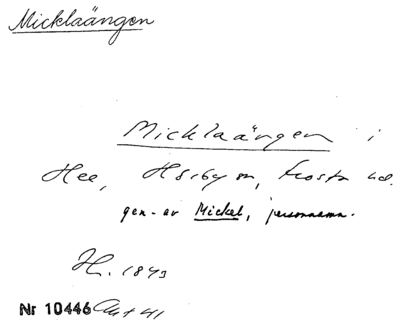 Micklaängen
Micklaängen i
Hee, Hörby sn, Frosta hd.
gen. av Mickel, personnamn.
H. 1843
Nr 10446 Akt 41